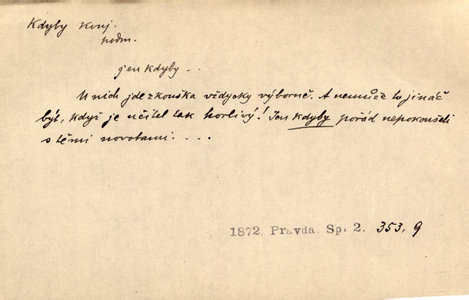 Kdyby konj.
podm.
jen kdyby ...
U nich jde zkouška vždycky výborně. A nemůže to jináč
být, když je učitel tak horlivý! Jen kdyby pořád nepokoušeli
s těmi novotami. . . .
1872. Pravda. Sp. 2. 353, 9